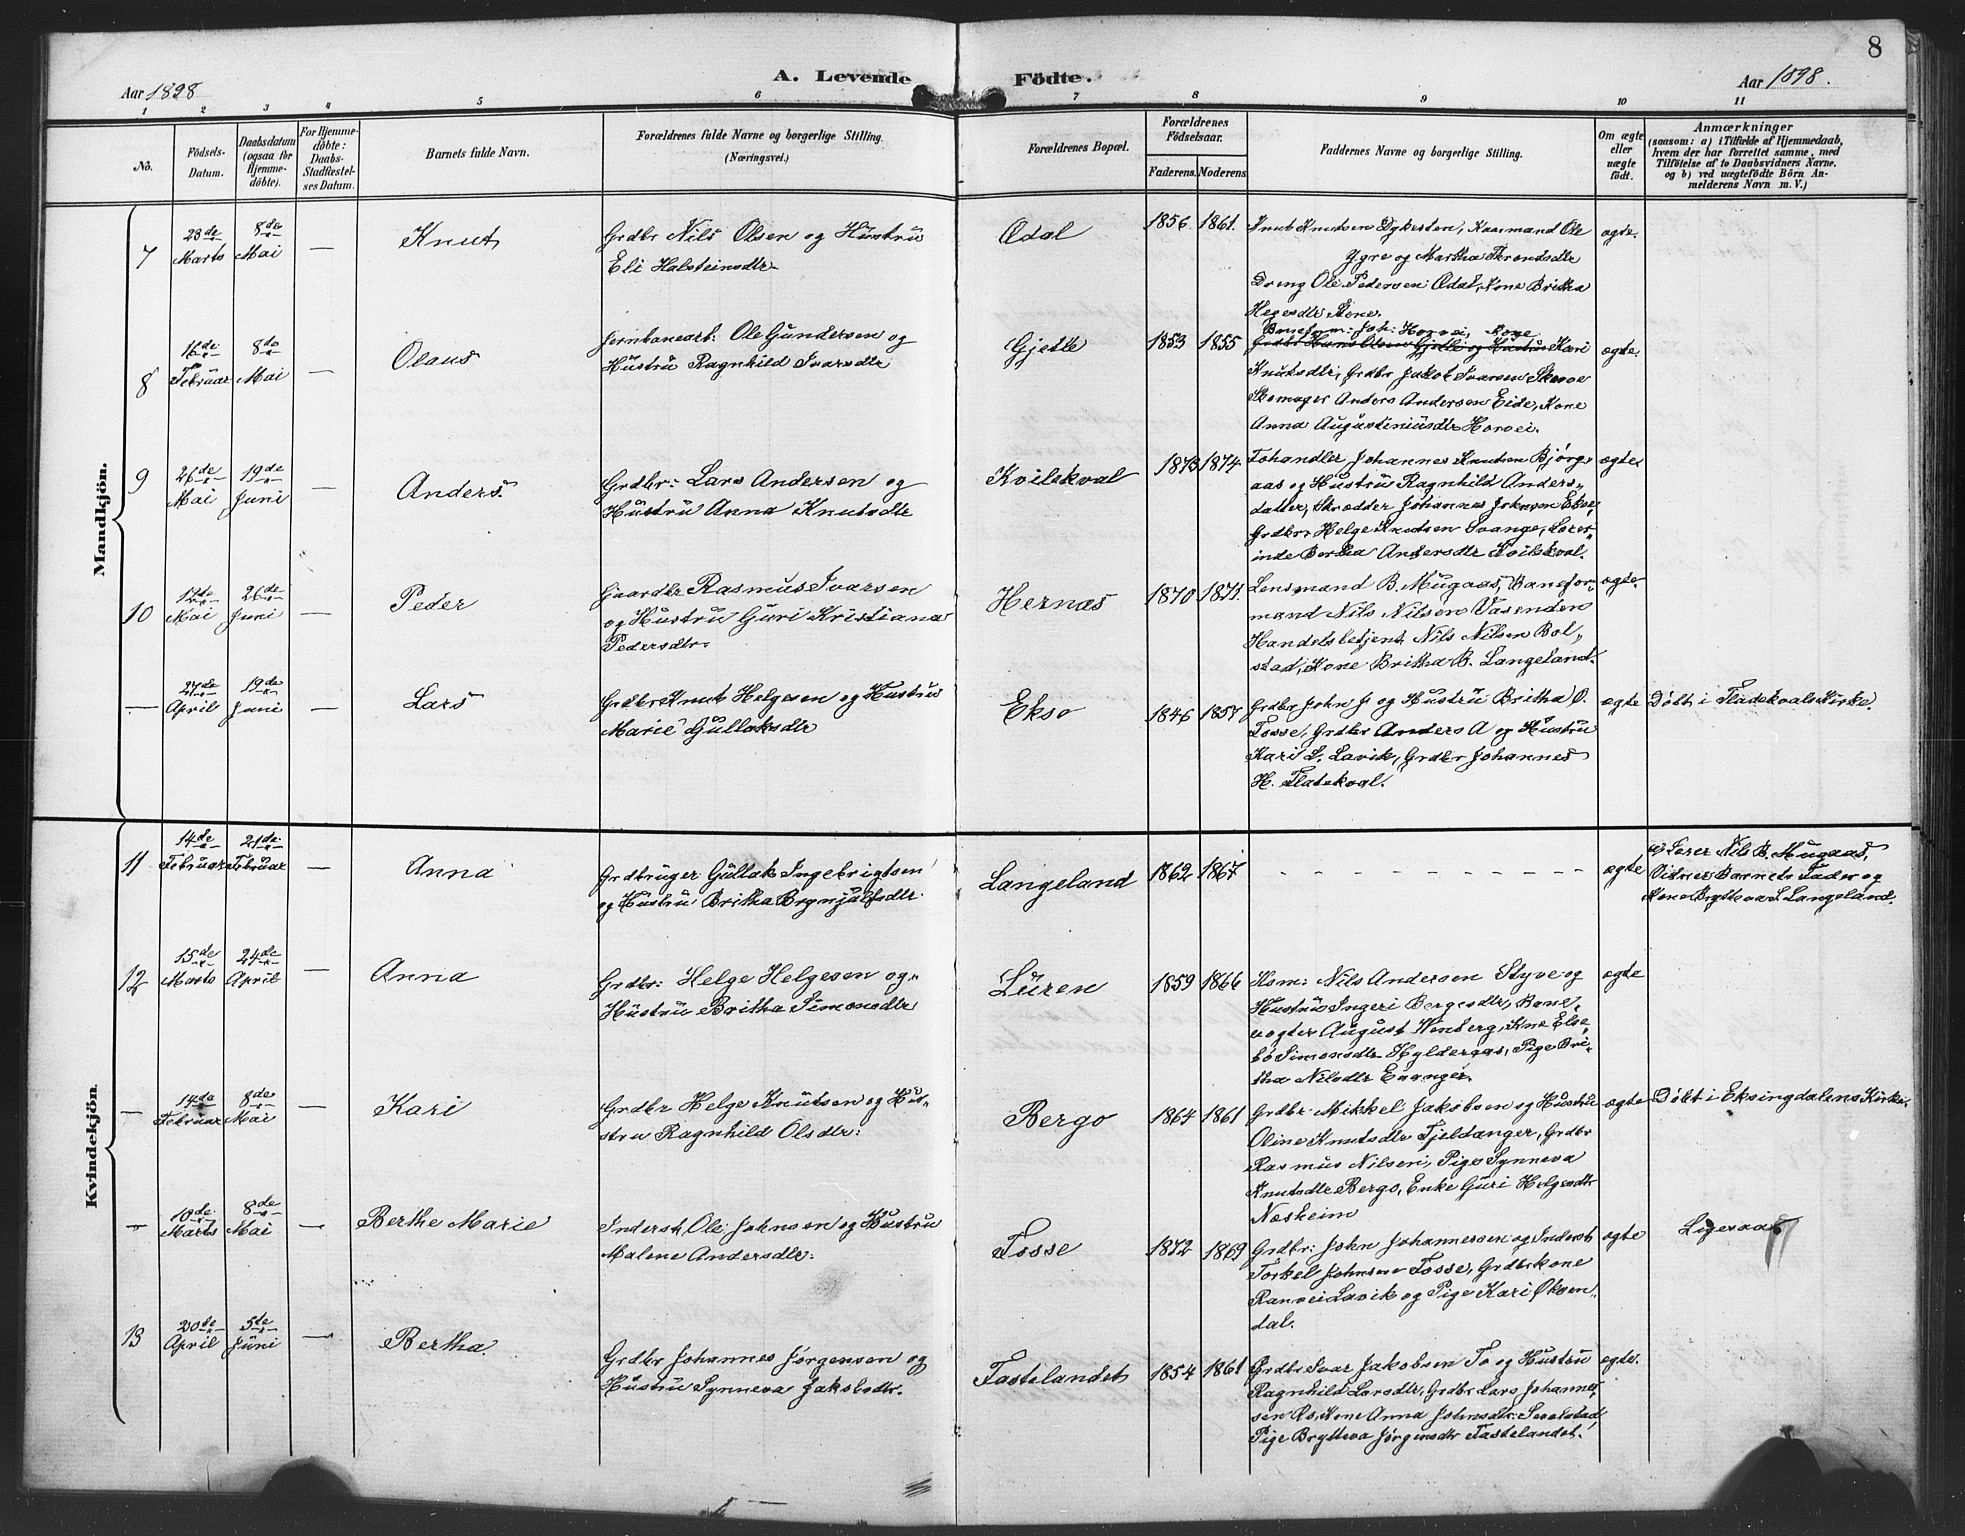 8
A. Levende Födte.
Aar 1898
Aar 1898.
1 2 3 4 5 6 7 8 9 10 11
No.
Födsels-
Datum.
Daabsdatum
(ogsaa for
Hjemme-
döbte).
For Hjemme-
döbte:
Daabs-
Stadfæstel-
ses Datum.
Barnets fulde Navn.
Forældrenes fulde Navne og borgerlige Stilling.
(Næringsvei.)
Forældrenes Bopæl.
Forældrenes
Födselsaar.
Faderens. Moderens.
Faddernes Navne og borgerlige Stilling.
Om ægte
eller
uægte
födt.
Anmærkninger
(saasom: a) i Tilfælde af Hjemmedaab,
hvem der har forrettet samme, med
Tilföielse af to Daabsvidners Navne,
og b) ved uægtefödte Börn An-
melderens Navn m. V.)
Mandkjön.
7
28de
Marts
8de
Mai
—
Knut
Grdbr Nils Olsen og Hustru
Eli Halsteinsdtr
Ædal
1856. 1861.
Knut Knutsen Dykesten, Kaarmand Ole
Ygre og Martha Throndsdtr
Dreng Ole Pedersen Ædal, Kone Britha
ægte.
8
16de
Februar
8de
Mai
—
Olaus
Jernbanearb: Ole Gundersen og
Hustru Ragnhild Ivarsdtr
Gjelle
1853 1855
Baneform: Joh: Horvei, Kone
Grdbr Hans Olsen Gjelle og Hustru Kari
Knutsdtr, Grdbr Jakob Ivarsen Skerve
Skomager Anders Andersen Eide, Kone
Anna Augustiniusdtr Horvei.
ægte
9
26de
Mai
19de
Juni
—
Anders
Grdbr: Lars Andersen og
Hustru Anna Knutsdtr
Kvilekval
1873 1874
Johannes Knutsen Bjørg-
aas og Hustru Ragnhild Anders-
datter, Skrædder Johannes Johnsen Ekse,
Grdbr Helge Knutsen Evange, Lærer-
inde Bertha Andersdtr Kvilekval.
ægte
10
12de
Mai
26de
Juni
—
Peder
Gaardbr Rasmus Ivarsen
og Hustru Guri Kristiana
Pedersdtr.
Hernæs
1870 1871.
Lensmand B. Mugaas, Banefor-
mand Nils Nilsen Vasenden
Handelsbetjent Nils Nilsen Bol-
stad, Kone Britha B. Langeland.
ægte
—
27de
April
19de
Juni
—
Lars
Grdbr Knut Helgesen og Hustru
Marie Gullaksdtr
Ekso
1846 1857
Grdbr John J og Hustru Britha O.
Fosse, Grdbr Anders A og Hustru
Kari L. Lavik, Grdbr Johannes
H. Flatekval.
ægte
Døbt i Fladekvals Kirke.
Kvindekjön.
11
14de
Februar
21de
Februar
—
Anna
Grdbruger Gullak Ingebrigtsen
og Hustru Britha Brynjulfsdtr.
Langeland
1862 1867
- - - - - - - - - - -
ægte
a) Lærer Nils B. Mugaas,
Vidner Barnets Fader og
Kone Brytteva S. Langeland.
12
15de
Marts
24de
April
—
Anna
Grdbr: Helge Helgesen og
Hustru Britha Simonsdtr
Luren
1859 1866
Hsm: Nils Andersen Styve og
Hustru Ingeri Bergesdtr, Bane-
vogter August Wenberg, Kone Else-
bø Simonsdtr Hylderaas, Pige Bri-
tha Nilsdtr Evanger.
ægte
—
14de
Februar
8de
Mai
—
Kari
Grdbr Helge Knutsen og Hus-
stru Ragnhild Olsdtr:
Bergo
1864 1861
Grdbr Mikkel Jakobsen og Hustru
Oline Knutsdtr Fjeldanger, Grdbr
Rasmus Nilsen, Pige Synneva
Knutsdtr Bergo, Enke Guri Helgesdtr
Næsheim
ægte
Døbt i Eksingdalens Kirke.
—
10de
Marts
8de
Mai
—
Berthe Marie
Inderst, Ole Johnsen og Hustru
Malene Andersdtr:
Fosse
1872 1869
Grdbr: John Johannessen og Inderst
Torkel Johnsen Fosse, Grdbrkone
Ranvei Lavik og Pige Kari Øksen
dal.
ægte
Ligesaa
13
20de
April
5de
Juni
—
Bertha.
Grdbr Johannes Jørgensen og
Hustru Synneva Jakobsdtr.
Fastelandet
1854 1861
Grdbr Ivar Jakobsen Fo og Hustru
Ragnhild Larsdtr, Grdbr Lars Johannes-
sen Ø, Kone Anna Johnsdtr:
Pige Brytteva Jørgensdtr Fastelandet.
ægte.